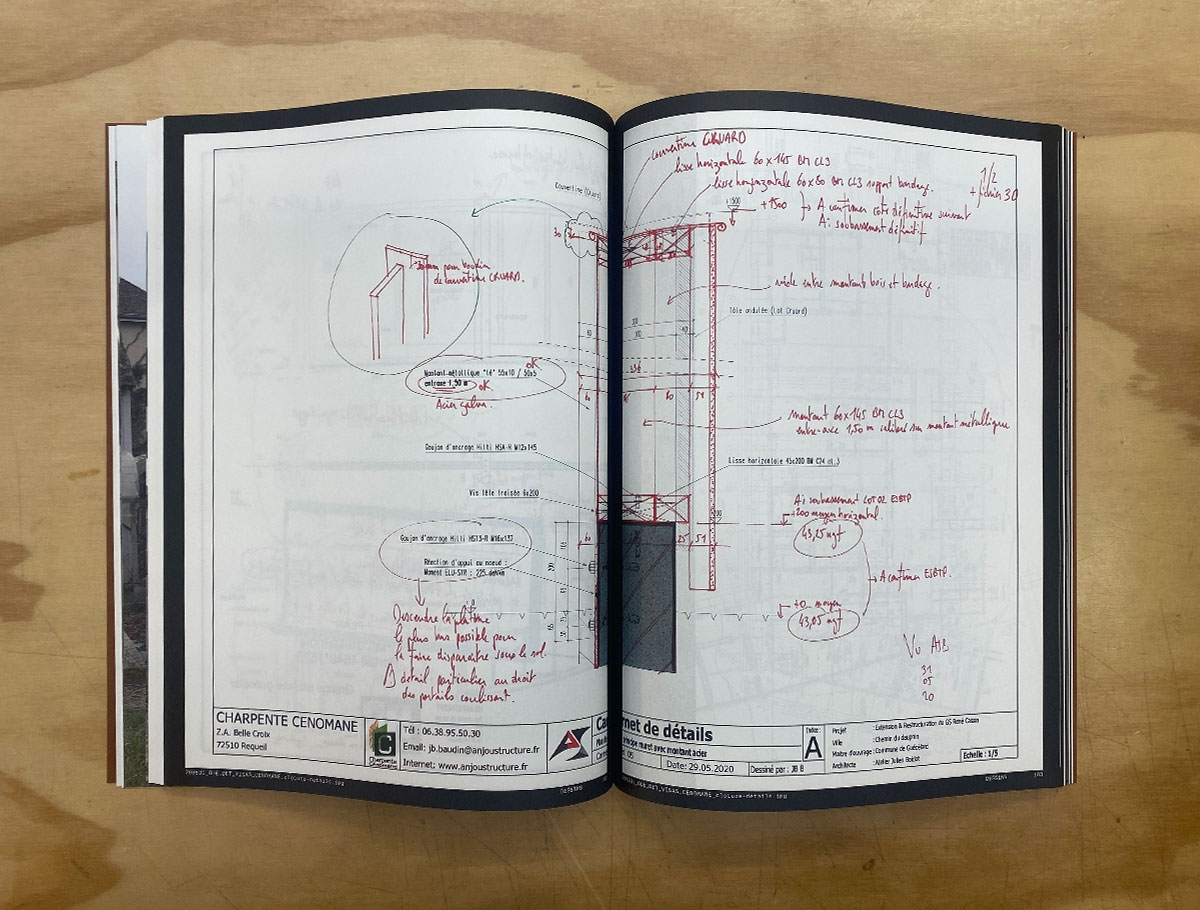 couvertine CRUARD
lisse horizontale 60x145 BM CL3
lisse horizontale 60x80 BM CL3 support bardage.
1/2
+ fichier 30
Couvertine (Cruard)
+1500
+1500
A confirmer côte définitive suivant
Ai soubassement définitif
30
30mm pour boudin
de couvertine CRUARD.
vide entre montant bois et bardage.
Tôle ondulée (Lot Cruard)
Montant métallique "té" 55x10 / 50x5
OK
entraxe 1,50 m
OK.
Acier galva.
montant 60x145 BM CL3
entre-axe 1,50 m calibré sur montant métallique
Goujon d'ancrage Hilti HSA-R M12x145
Lisse horizontale 45x200 BM C24 cl.3
Vis tête fraisée 6x200
Ai soubassement LOT 02 ESBTP
+200 moyen horizontal
43,25 ngf
Goujon d'ancrage Hilti HST3-R M16x137
Réaction d'appui au noeud :
Moment ELU-STR : 225 daN.m
A confirmer ESBTP.
+0 moyen
43,05 ngf
Descendre la platine
le plus bas possible pour
la faire disparaître sous le sol.
détail particulier au droit
des portails coulissant.
Vu AJB
31
05
20
CHARPENTE CENOMANE
Z.A. Belle Croix
72510 Requeil
Charpente
Cénomane
Tél : 06.38.95.50.30
Email: jb.baudin@anjoustructure.fr
Internet: www.anjoustructure.fr
Carnet de détails
principe muret avec montant acier
Date: 29.05.2020
Dessiné par : JB B
Indice:
A
Projet : Extension & Restructuration du GS René Cassin
Ville : Chemin du dauphin
Maitre d'ouvrage : Commune de Guécélard
Architecte : Atelier Julien Boidot
Echelle : 1/5
DESSINS
DESSINS